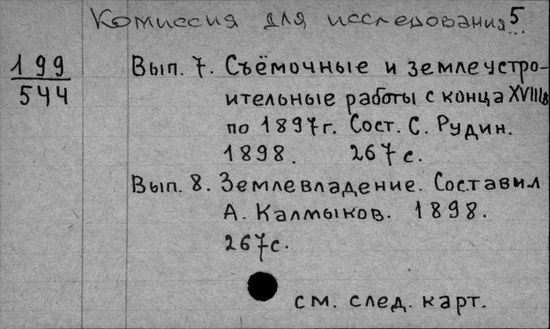 Комиссия для исследования 5
199
544
Вып. 7. Съёмочные и землеустро-
ительные работы с конца XVIIIв
по 1897г. Сост. С. Рудин.
1898. 267с.
Вып. 8. Землевладение. Составил
А. Калмыков. 1898.
267с.
см. след. карт.